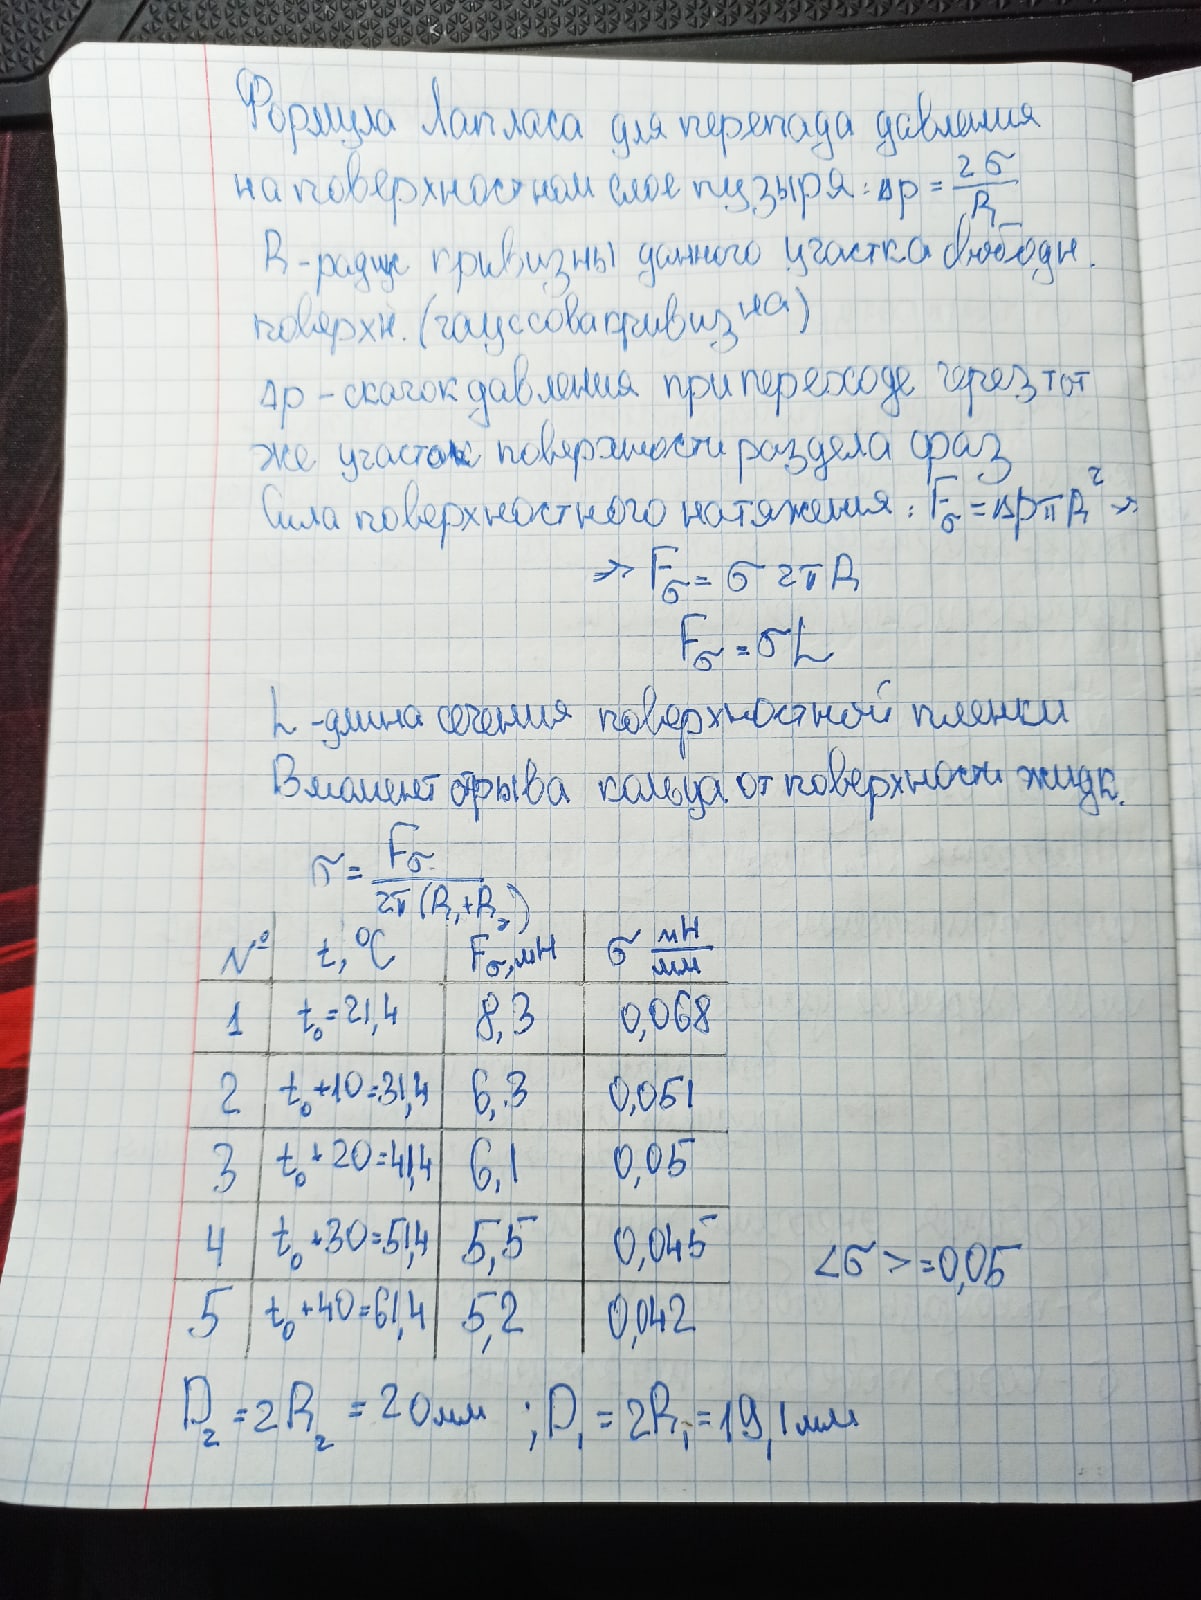 Формула Лапласа для перепада давления
на поверхностном слое пузыря: Δp = 2σ/R
R - радиус кривизны данного участка свободн.
поверхн. (гауссова кривизна)
Δp - скачок давления при переходе через тот
же участок поверхности раздела фаз
Сила поверхностного натяжения: Fσ = Δp π R² =>
=> Fσ = σ 2π R
Fσ = σL
L - длина сечения поверхностной пленки
В момент отрыва кольца от поверхности жидк.
σ = Fσ / 2π (R₁+R₂)
№ t, °C Fσ, мН σ мН/мм
1 t₀=21,4 8,3 0,068
2 t₀+10=31,4 6,3 0,051
3 t₀+20=41,4 6,1 0,05
4 t₀+30=51,4 5,5 0,045 <σ> = 0,05
5 t₀+40=61,4 5,2 0,042
D₂ = 2R₂ = 20 мм ; D₁ = 2R₁ = 19,1 мм